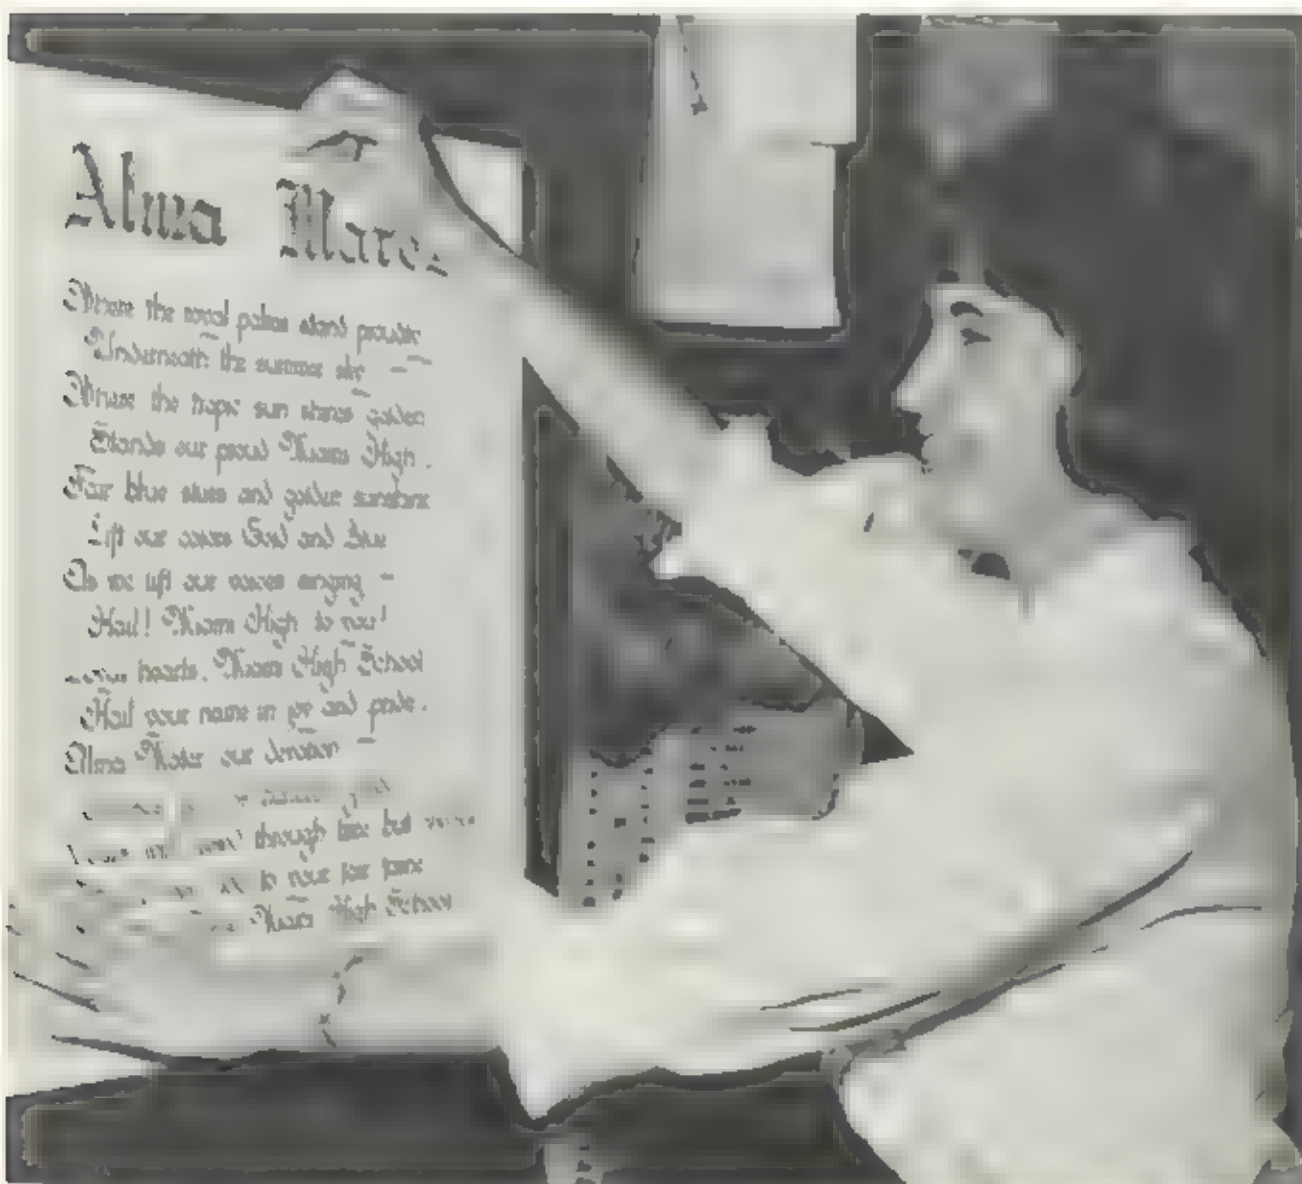 Alma Mater
Where the royal palms stand proudly
Underneath the summer sky
Where the tropic sun shines golden
Stands our proud Miami High.
Fair blue skies and golden sunshine
Lift our colors Gold and Blue
As we lift our voices singing
Hail! Miami High to you!
hearts, Miami High School
Hail your name in joy and pride.
Alma Mater our devotion
through but
to your fair fame
Miami High School